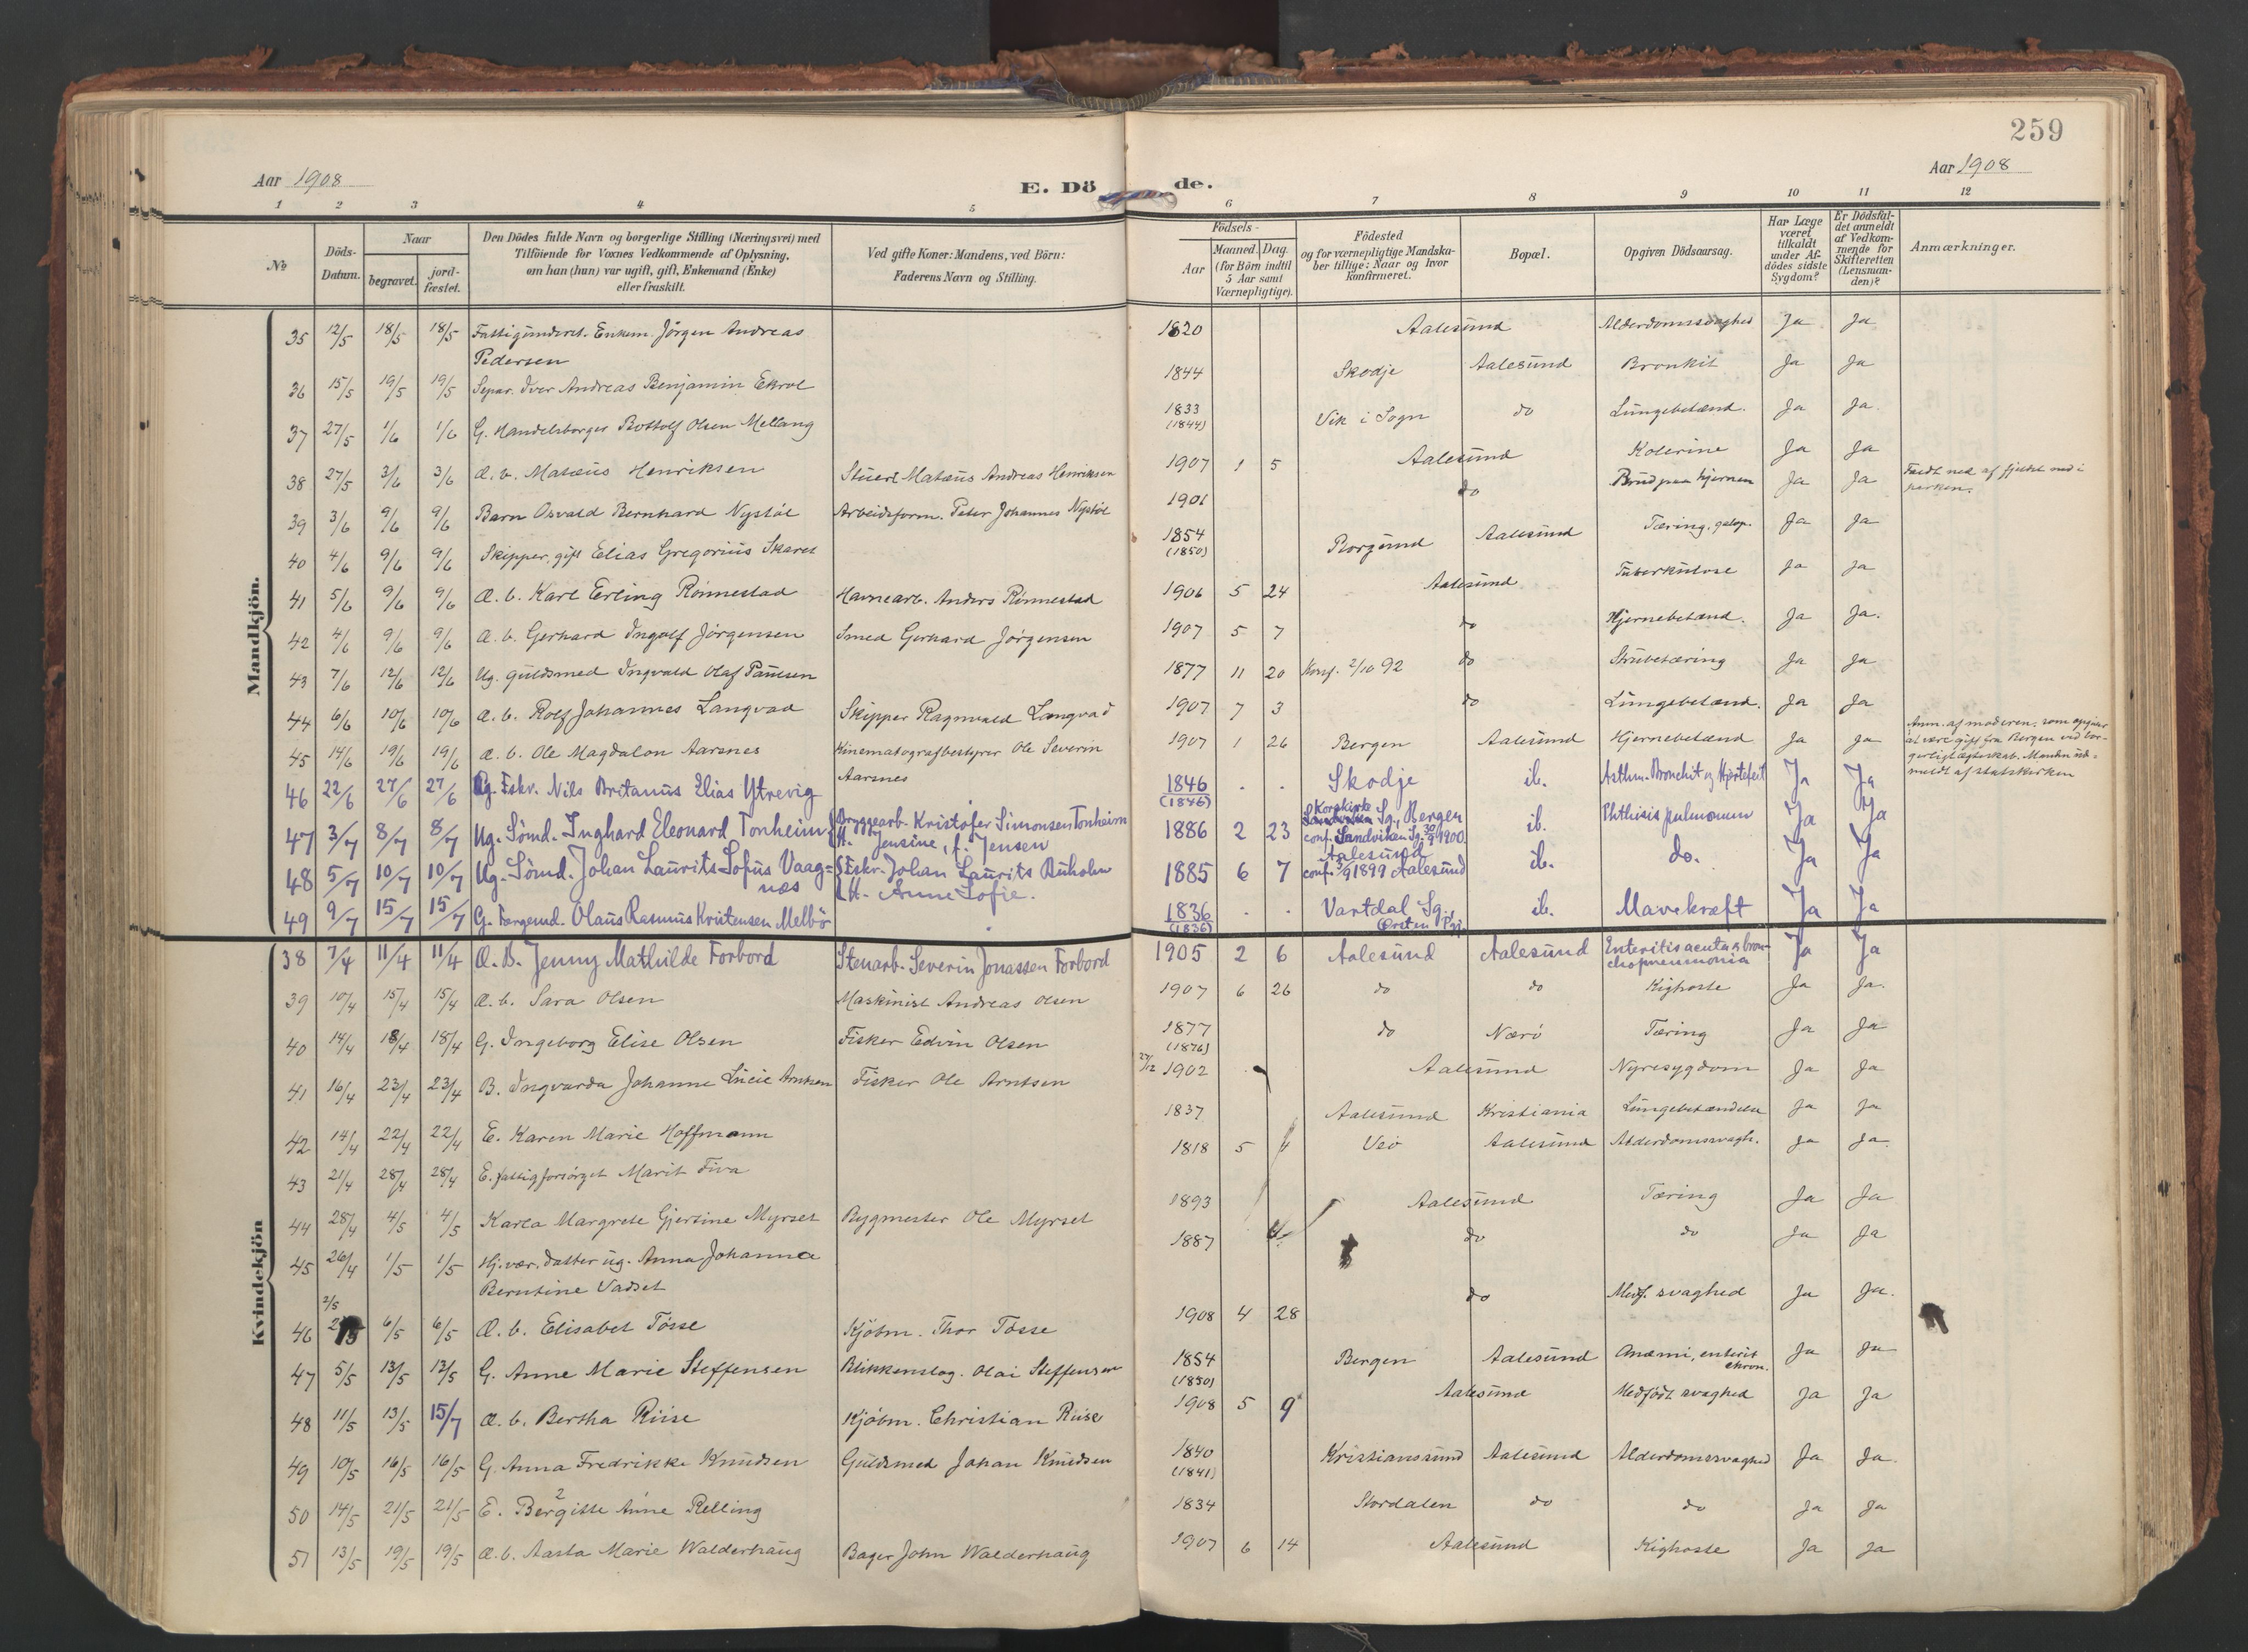 259
Aar 1908
E. Dö
de.
Aar 1908
1 2 3 4 5 6 7 8 9 10 11 12
No
Döds-
Datum.
Naar
begravet.
jord-
fæstet.
Den Dödes fulde Navn og borgerlige Stilling (Næringsvei) med
Tilföiende for Voxnes Vedkommende af Oplysning,
om han (hun) var ugift, gift, Enkemand (Enke)
eller fraskilt.
Ved gifte Koner: Mandens, ved Börn:
Faderens Navn og Stilling.
Födsels-
Aar
Maaned.
Dag.
(for Börn indtil
5 Aar samt
Værnepligtige).
Födested
og for værnepligtige Mandska-
ber tillige: Naar og hvor
konfirmeret.
Bopæl.
Opgiven Dödsaarsag.
Har Læge
været
tilkaldt
under Af-
dödes sidste
Sygdom?
Er Dödsfal-
det anmeldt
af Vedkom-
mende for
Skifteretten
(Lensman-
den)?
Anmærkninger.
Mandkjön.
35 12/5 18/5 18/5 Fattigunderst. Enkem. Jörgen Andreas 1820 Aalesund Alderdomssvaghed Ja Ja
Pedersen
36 15/5 19/5 19/5 Separ. Iver Andreas Benjamin Ekrol 1844 Skodje Aalesund Bronkit Ja Ja
37 27/5 1/6 1/6 G. Handelsborger Bottolf Olsen Mellang 1833 Vik i Sogn do Lungebetænd. Ja Ja.
(1844)
38 27/5 3/6 3/6 Æ. b. Matæus Henriksen Stuert Matæus Andreas Henriksen 1907 1 5 Aalesund Kolerine Ja Ja
39 3/6 9/6 9/6 Barn Osvald Bernhard Nystöl Arbeidsform. Peter Johannes Nystöl 1901 do Brud paa hjernen Ja Ja Faldt ned af fjeldet ned i
parken.
40 4/6 9/6 9/6 Skipper, gift Elias Gregorius Skaret 1854 Borgund Aalesund Tæring, galop. Ja Ja
(1850)
41 5/6 9/6 9/6 Æ. b. Karl Erling Rönnestad Havnearb. Anders Rönnestad 1906 5 24 Aalesund Tuberkulose Ja Ja
42 4/6 9/6 9/6 Æ. b. Gerhard Ingolf Jörgensen Smed Gerhard Jörgensen 1907 5 7 do Hjernebetænd. Ja Ja.
43 7/6 12/6 12/6 Ug. guldsmed Ingvald Olaf Paulsen 1877 11 20 Konf. 2/10 92 do Strubetæring Ja Ja
44 6/6 10/6 10/6 Æ. b. Rolf Johannes Langvad Skipper Ragnvald Langvad 1907 7 3 do Lungebetænd. Ja Ja
45 14/6 19/6 19/6 Æ. b. Ole Magdalon Aarsnes Kinematografbestyrer Ole Severin 1907 1 26 Bergen Aalesund Hjernebetænd Ja Ja Anm. af moderen, som opgiver
Aarsnes
at være gift fra Bergen ved bor-
gerligt ægteskab. Manden ud-
meldt af statskirken
46 22/6 27/6 27/6 Pg. Fskr. Nils Britanus Elias Ytrevig 1846 . . Skodje ib. Asthm. Bronchit og Hjertefeil Ja Ja
(1846)
47 3/7 8/7 8/7 Ug. Sömd. Inghard Eleonard Tonheim Bryggearb. Kristofer Simonsen Tonheim 1886 2 23 Korskirke Sg., Bergen ib. Phthisis pulmonum Ja Ja
H. Jensine, f. Jensen conf. Sandviken Sg. 30/9 1900.
48 5/7 10/7 10/7 Ug. Sömd. Johan Laurits Sofus Vaag= Fskr. Johan Laurits Buholm 1885 6 7 Aalesund ib. do. Ja Ja
nes H. Anne Sofie. conf. 3/9 1899 Aalesund
49 9/7 15/7 15/7 G. Færgemd. Olaus Rasmus Kristensen Melbö 1836 . . Vartdal Sg. ib. Mavekræft Ja Ja
(1836) Örsten Pgj.
Kvindekjön
38 7/4 11/4 11/4 Æ. B. Jenny Mathilde Forbord Stenarb. Severin Jonassen Forbord 1905 2 6 Aalesund Aalesund Enteritis acuta & bron- Ja Ja
chopneumonia
39 10/4 15/4 15/4 Æ. b. Sara Olsen Maskinist Andreas Olsen 1907 6 26 do do Kighoste Ja Ja.
40 14/4 18/4 18/4 G. Ingeborg Elise Olsen Fisker Edvin Olsen 1877 do Nærö Tæring Ja Ja
(1876)
41 16/4 23/4 23/4 B. Ingvarda Johanne Lucie Arntsen Fisker Ole Arntsen 27/12 1902 Aalesund Nyresygdom Ja Ja
42 14/4 22/4 22/4 E. Karen Marie Hoffmann 1837 Aalesund Kristiania Lungebetændelse Ja Ja
43 21/4 28/4 28/4 E. fattigforsörget Marit Fiva 1818 5 4 Veö Aalesund Alderdomssvagh. Ja Ja.
44 28/4 4/5 4/5 Karla Margrete Gjertine Myrset Bygmester Ole Myrset 1893 Aalesund Tæring Ja Ja
45 26/4 1/5 1/5 Hj. vær. datter ug. Anna Johanna 1887 do do Ja Ja
Berntine Vadset
46 2/5 6/5 6/5 Æ. b. Elisabet Tösse Kjöbm. Thor Tösse 1908 4 28 do Medf. svaghed Ja Ja.
47 5/5 13/5 13/5 G. Anne Marie Steffensen Blikkenslag. Olai Steffensen 1854 Bergen Aalesund Anæmi, enterit Ja Ja
(1850) chron.
48 11/5 13/5 15/7 Æ. b. Bertha Riise Kjöbm. Christian Riise 1908 5 9 Aalesund Medfödt svaghed Ja Ja
49 10/5 16/5 16/5 G. Anna Fredrikke Knudsen Guldsmed Johan Knudsen 1840 Kristianssund Aalesund Alderdomssvaghed Ja Ja.
(1841)
50 14/5 21/5 21/5 E. Bergitte Anne Relling 1834 Stordalen do do Ja Ja
51 13/5 19/5 19/5 Æ. b. Aasta Marie Walderhaug Bager John Walderhaug 1907 6 14 Aalesund Kighoste Ja Ja